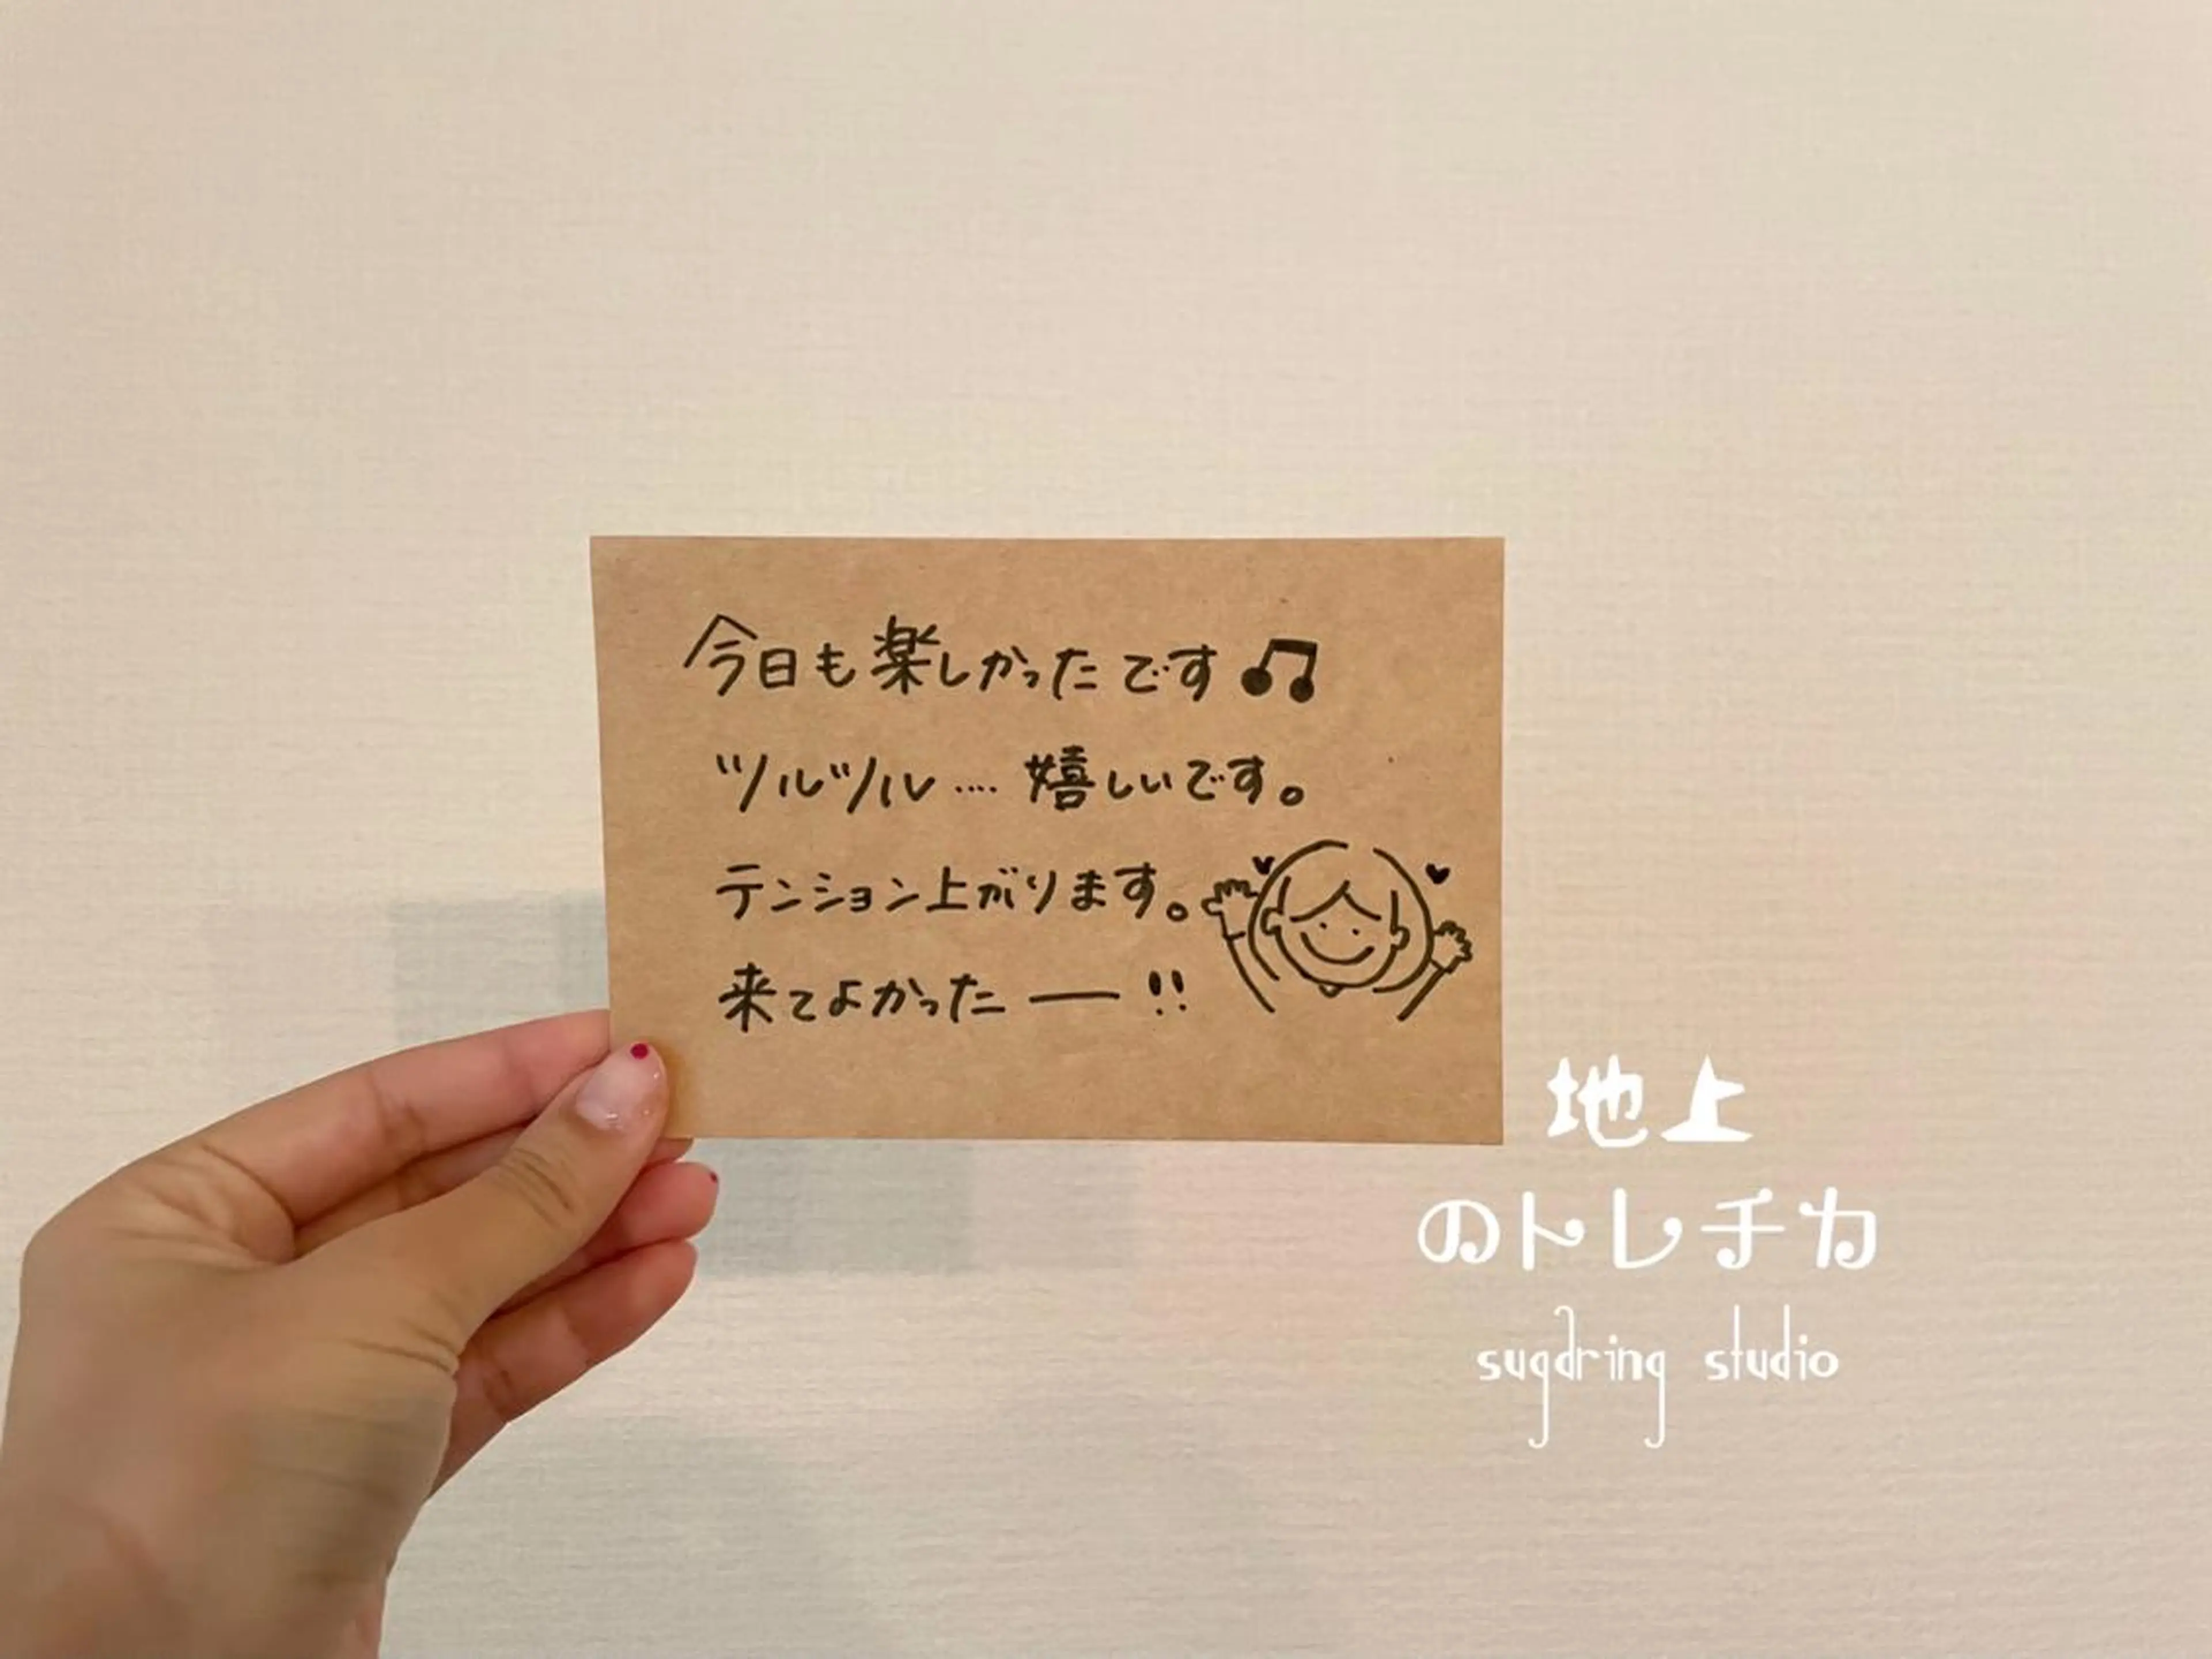 今日も楽しかったです♫
ツルツル.... 嬉しいです。
テンション上がります。
来てよかったー!!
地上
のトレチカ
sugdring studio